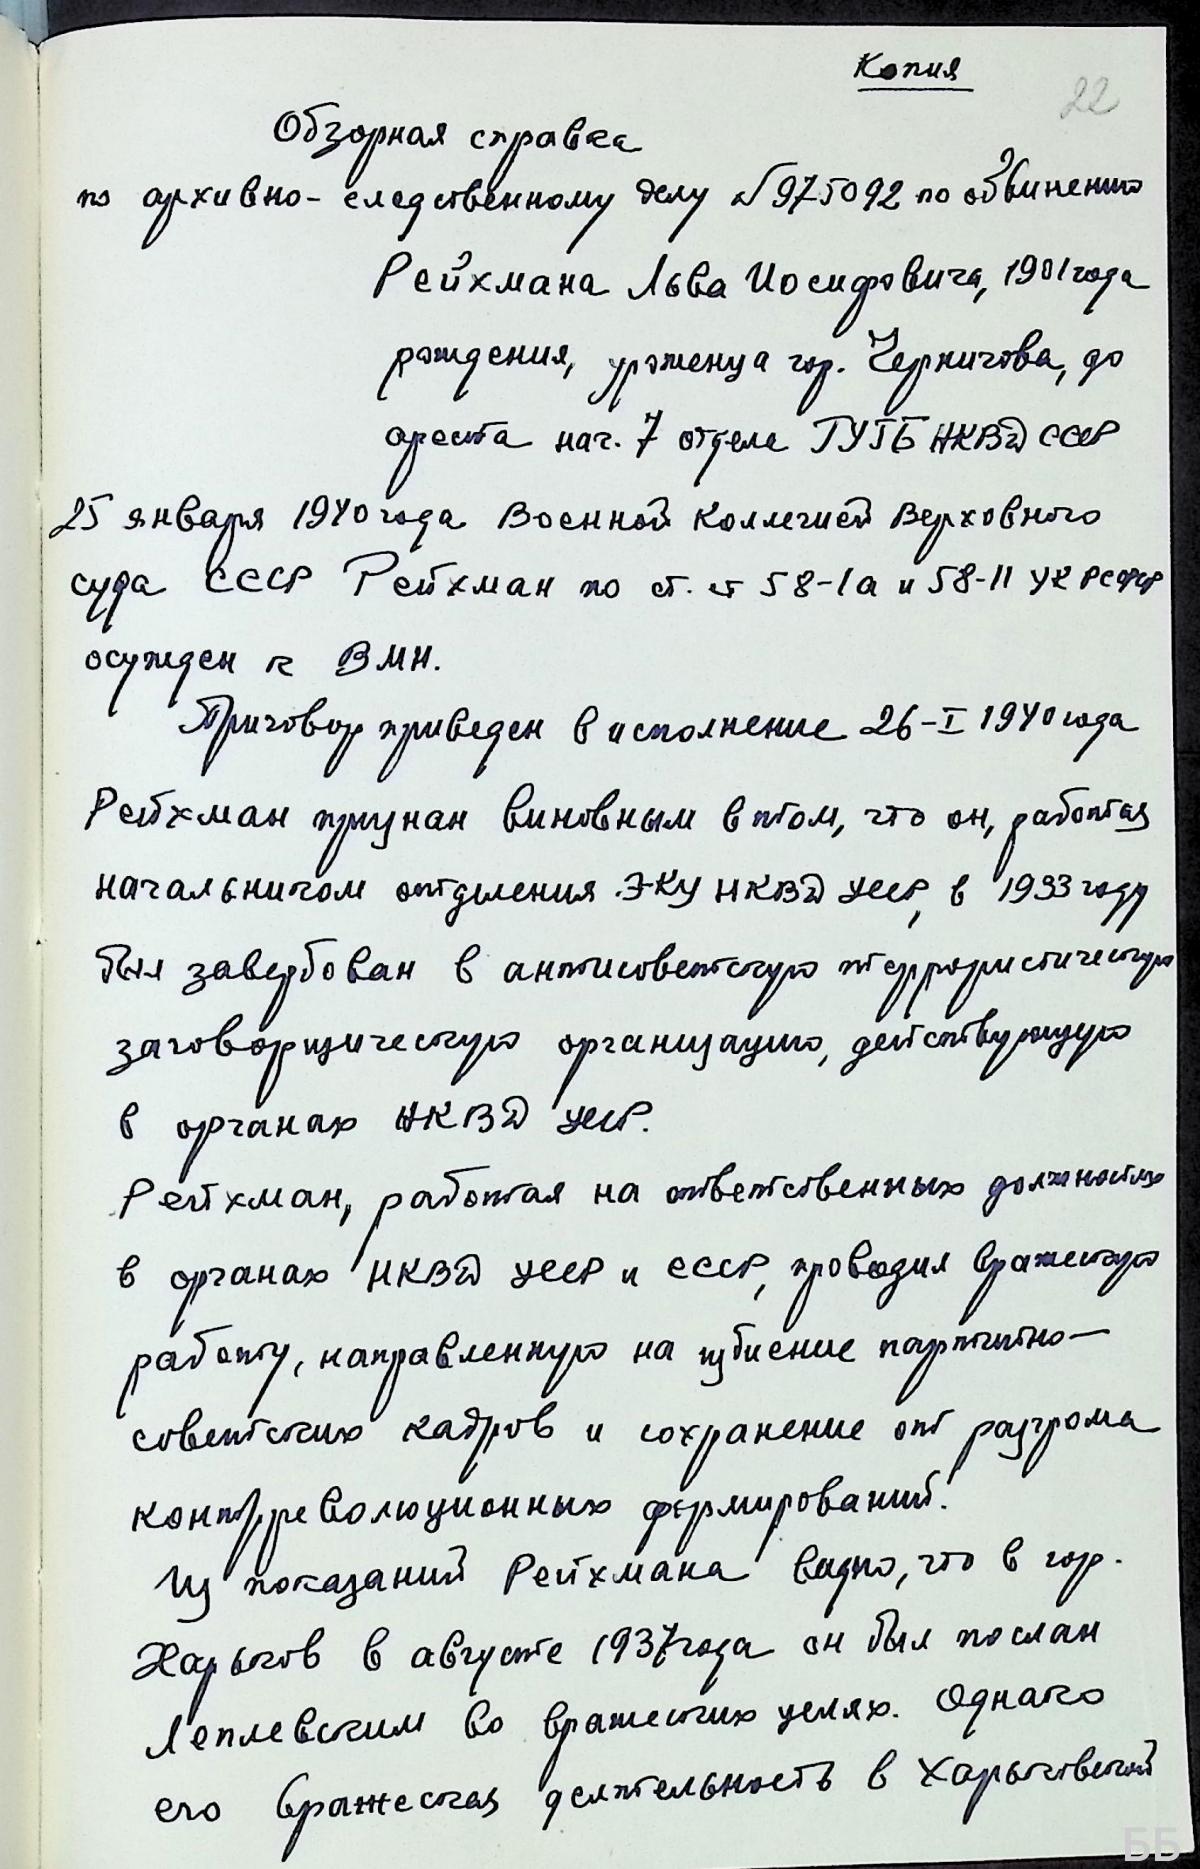 Копия
22
Обзорная справка
по архивно-следственному делу №975092 по обвинению
Рейхмана Льва Иосифовича, 1901 года
рождения, уроженца гор. Чернигова, до
ареста нач. 7 отдела ГУГБ НКВД СССР
25 января 1940 года Военной Коллегией Верховного
суда СССР Рейхман по ст. ст 58-1а и 58-11 УК РСФСР
осужден к ВМН.
Приговор приведен в исполнение 26-I 1940 года
Рейхман признан виновным в том, что он, работая
начальником отделения ЭКУ НКВД УССР, в 1933 году
был завербован в антисоветскую террористическую
заговорщическую организацию, действующую
в органах НКВД УССР.
Рейхман, работая на ответственных должностях
в органах НКВД УССР и СССР, проводил вражескую
работу, направленную на избиение партийно-
советских кадров и сохранение от разгрома
контрреволюционных формирований.
Из показаний Рейхмана видно, что в гор.
Харьков в августе 1937 года он был послан
Леплевским во вражеских целях. Однако
его вражеская деятельность в Харьковской
ББ